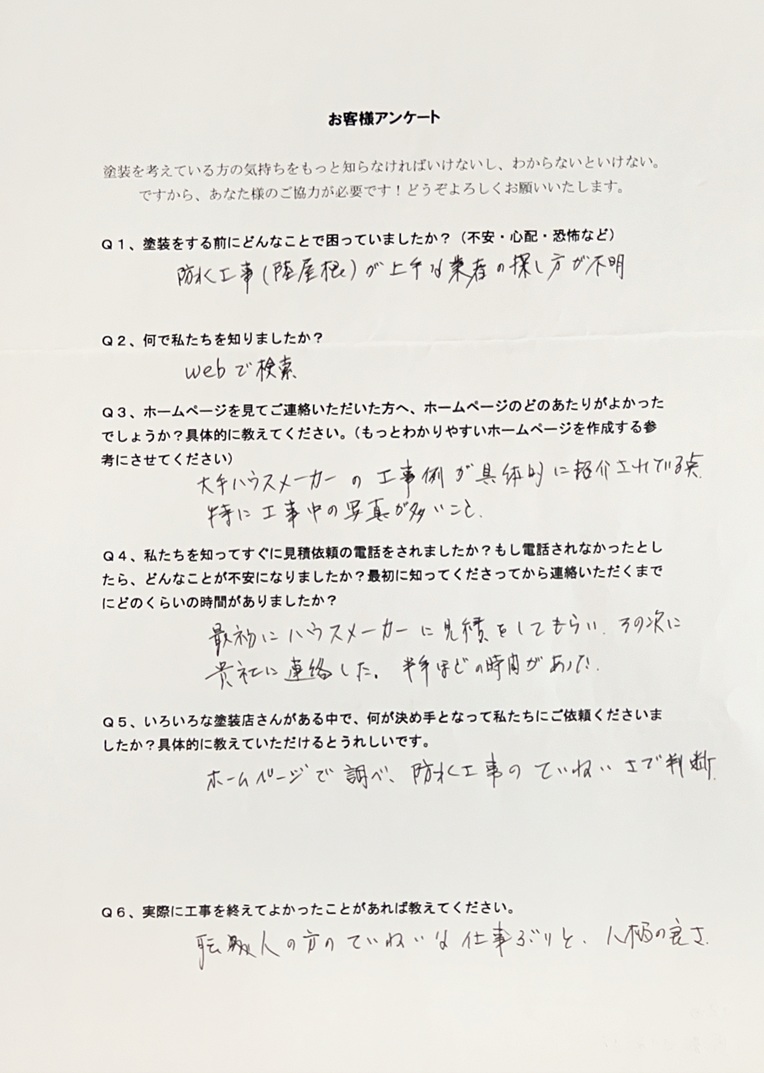 お客様アンケート
塗装を考えている方の気持ちをもっと知らなければいけないし、わからないといけない。
ですから、あなた様のご協力が必要です！どうぞよろしくお願いいたします。
Ｑ１、塗装をする前にどんなことで困っていましたか？（不安・心配・恐怖など）
防水工事(陸屋根)が上手な業者の探し方が不明
Ｑ２、何で私たちを知りましたか？
webで検索
Ｑ３、ホームページを見てご連絡いただいた方へ、ホームページのどのあたりがよかった
でしょうか？具体的に教えてください。（もっとわかりやすいホームページを作成する参
考にさせてください）
大手ハウスメーカーの工事例が具体的に紹介されている点
特に工事中の写真が多いこと.
Ｑ４、私たちを知ってすぐに見積依頼の電話をされましたか？もし電話されなかったとし
たら、どんなことが不安になりましたか？最初に知ってくださってから連絡いただくまで
にどのくらいの時間がありましたか？
最初にハウスメーカーに見積をしてもらい、その次に
貴社に連絡した。半年ほどの時間があった.
Ｑ５、いろいろな塗装店さんがある中で、何が決め手となって私たちにご依頼くださいま
したか？具体的に教えていただけるとうれしいです。
ホームページで調べ、防水工事のていねいさで判断.
Ｑ６、実際に工事を終えてよかったことがあれば教えてください。
職人の方のていねいな仕事ぶりと、人柄の良さ.